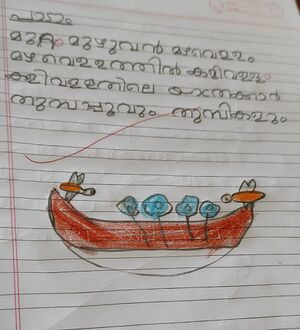 പാട്ടം
മുറ്റം മുഴുവൻ മഴവെള്ളം
മഴ വെള്ളത്തിൽ കളിവള്ളം
കളിവള്ളത്തിലെ യാത്രക്കാർ
തുമ്പപ്പൂവും തുമ്പികളും